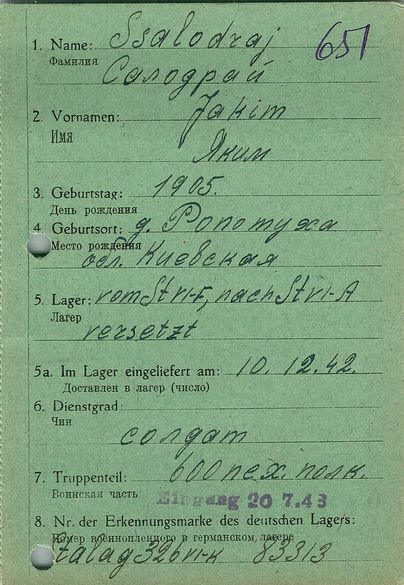 651
1. Name: Ssalodraj
Фамилия
Салодрай
2. Vornamen: Jakim
Имя
Яким
3. Geburtstag: 1905.
День рождения
4. Geburtsort: д. Ропотуха
Место рождения
обл. Киевская
5. Lager: vom St VI-F, nach St VI-A
Лагер
versetzt
5a. Im Lager eingeliefert am: 10. 12. 42.
Доставлен в лагер (число)
6. Dienstgrad:
Чин
солдат
7. Truppenteil: 600 пех. полк.
Воинская часть
Eingang 20 7.43
8. Nr. der Erkennungsmarke des deutschen Lagers:
Номер военнопленного в германском лагере
Stalag 326 VI-K 83313